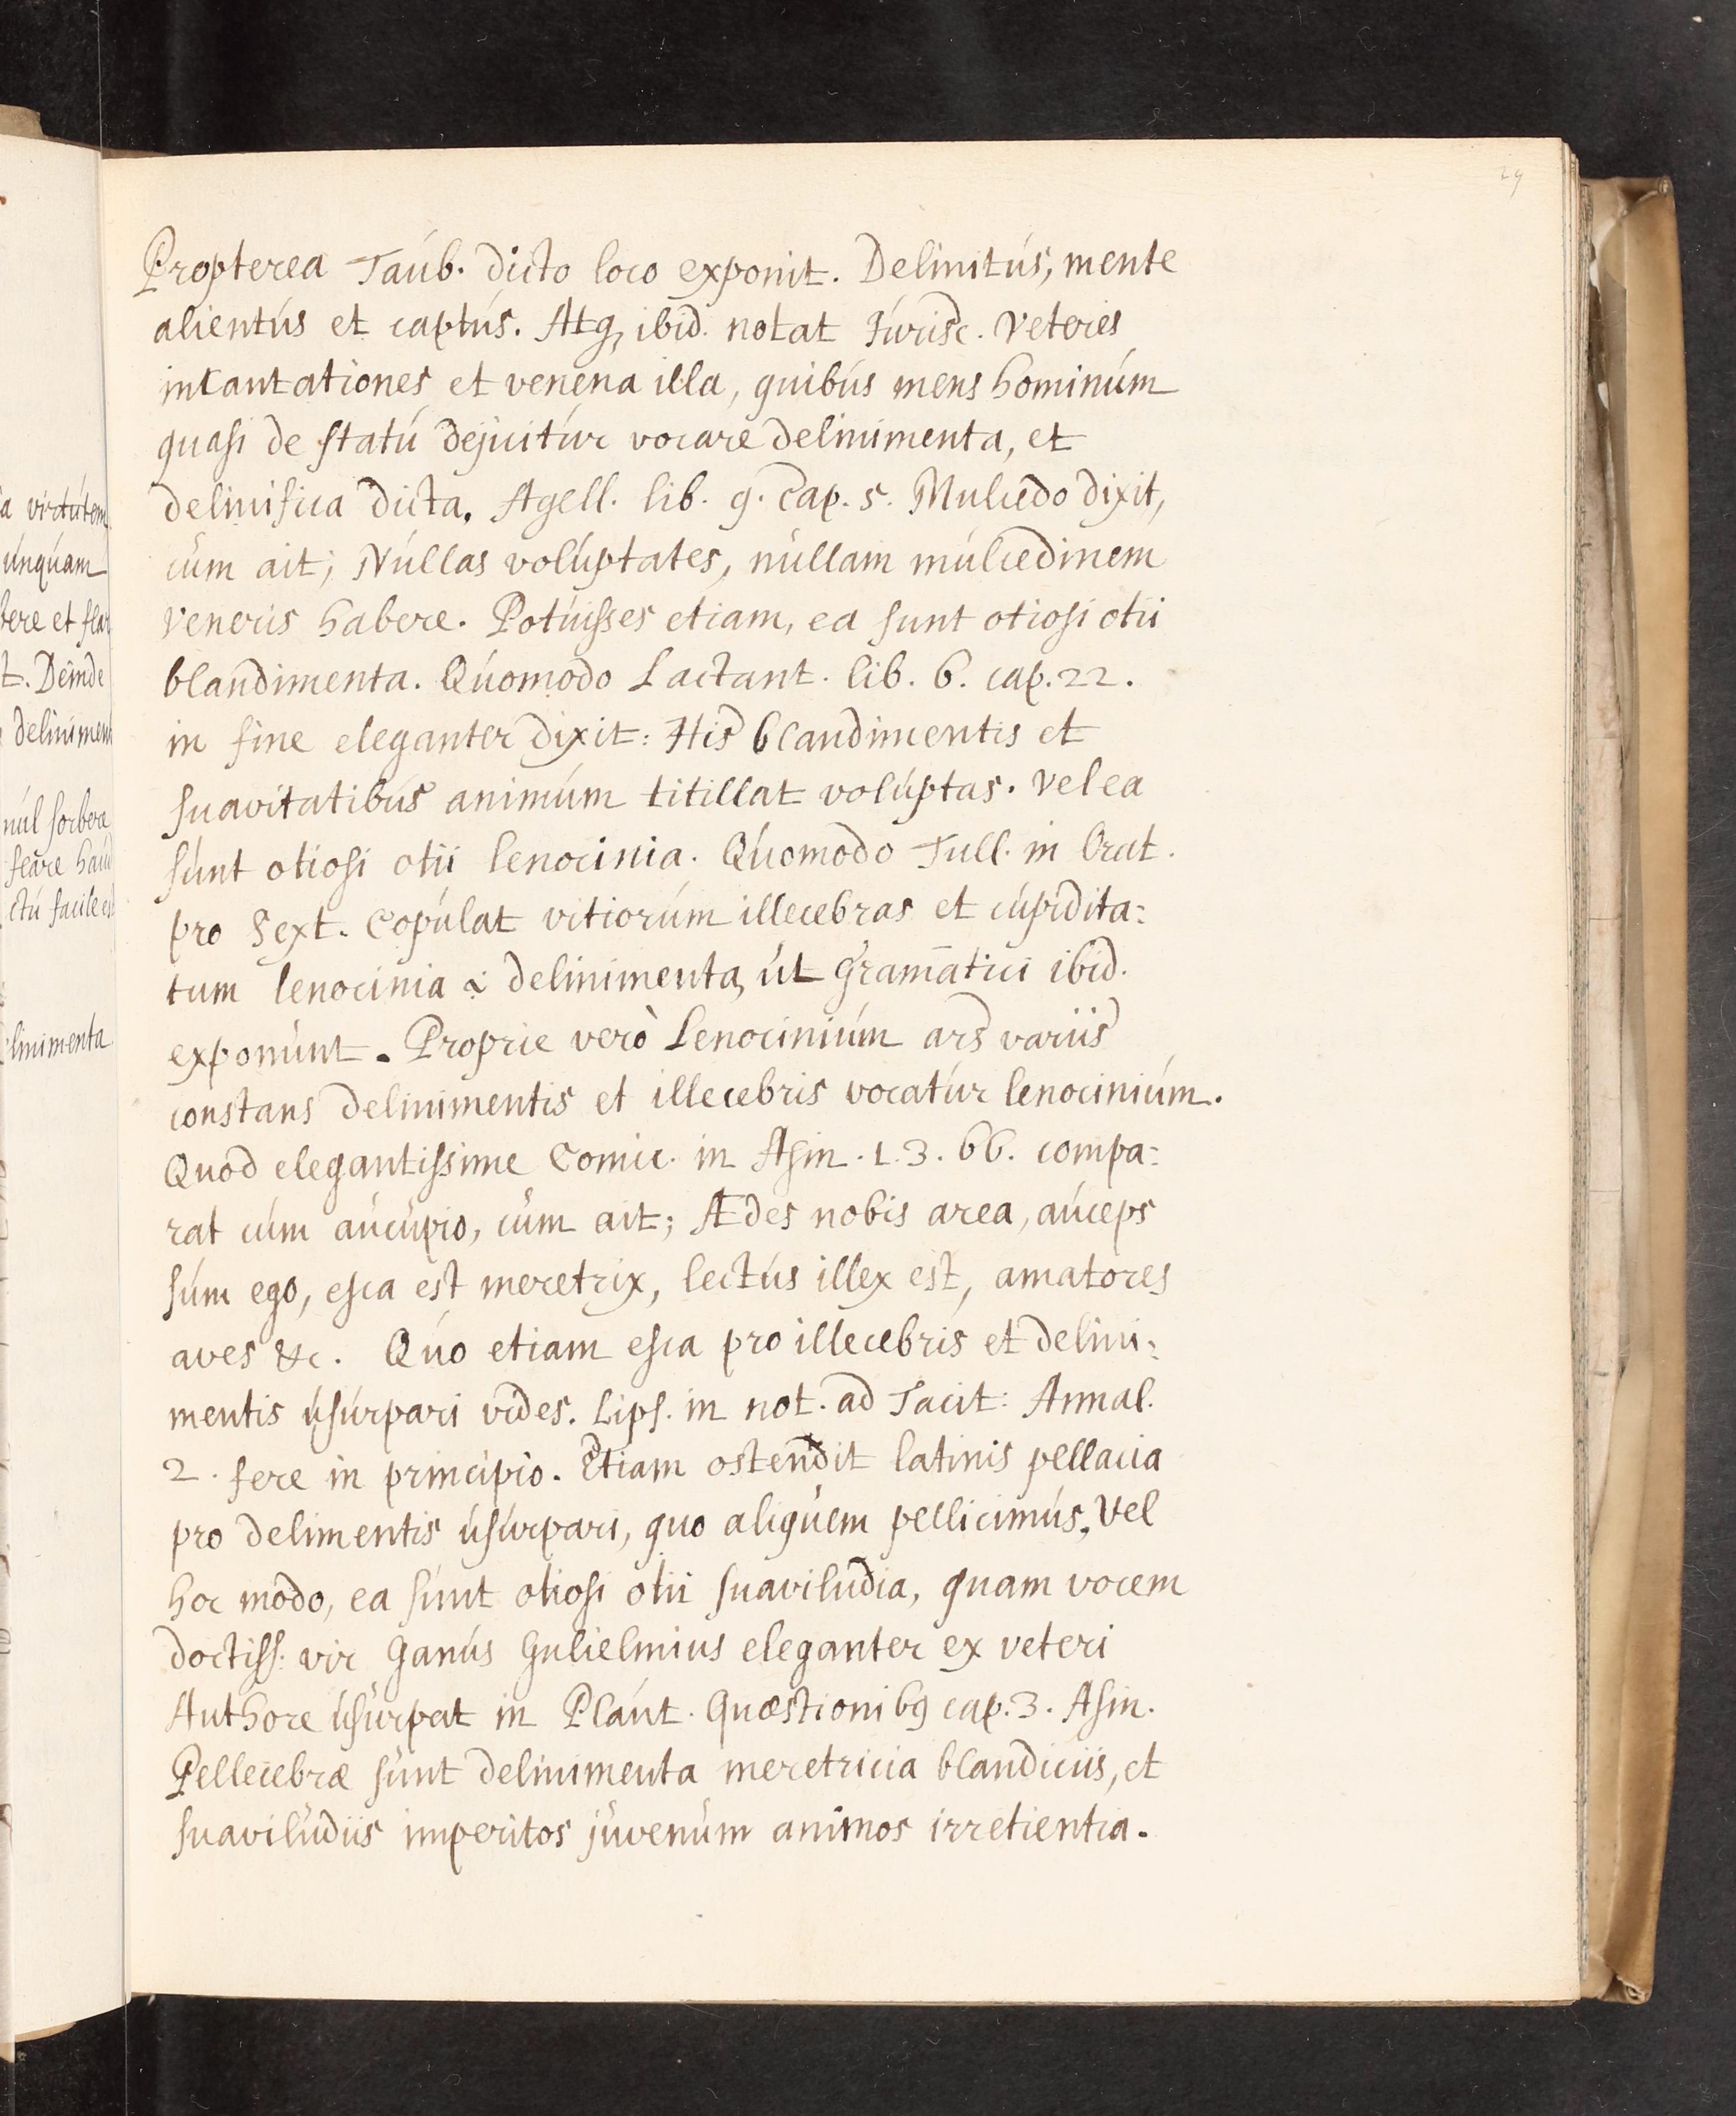 29
Propterea Taúb. dicto loco exponit. Delinitús, mente
alientús et captús. Atq, ibid. notat Júrisc. Veteres
incantationes et venena illa, quibús mens hominúm
quasi de statú dejicitúr vocare delinimenta, et
delinifica dicta. Agell. lib. 9. cap. 5. Mulcedo dixit,
cúm ait; Núllas volúptates, núllam múlcedinem
Veneris habere. Potúisses etiam, ea sunt otiosi otii
blandimenta. Qúomodo Lactant. lib. 6. cap. 22.
in fine eleganter dixit: His blandimentis et
suavitatibús animúm titillat volúptas. Vel ea
súnt otiosi otii lenocinia. Qúomodo Tull. in Orat.
pro Sext. Copúlat vitiorúm illecebras et cúpidita:
tum lenocinia i delinimenta, út Gram̄atici ibid.
exponúnt. Proprie verò Lenociniúm ars variis
constans delinimentis et illecebris vocatúr lenociniúm.
Quod elegantissime Comic. in Asin. 1. 3. 66. compa:
rat cúm aúcúpio, cúm ait; Ædes nobis area, aúceps
súm ego, esca est meretrix, lectús illex est, amatores
aves &c. Qúo etiam esca pro illecebris et delini:
mentis úsúrpari vides. Lips. in not. ad Tacit: Annal.
2. fere in principio. Etiam ostendit latinis pellacia
pro delimentis úsúrpari, quo aliqúem pellicimús. Vel
hoc modo, ea súnt otiosi otii suavilúdia, quam vocem
doctiss: vir Janús Gulielmius eleganter ex veteri
Authore úsúrpat in Plaút. Quæstionib9 cap. 3. Asin.
Pellecebræ súnt delinimenta meretricia blandiciis, et
suavilúdiis imperitos júvenúm animos irretientia.
a virtútem
únqúam
bere et flar
t. Deinde
delinimen
múl sorbere
flare haúd
ctú facile es
elinimenta